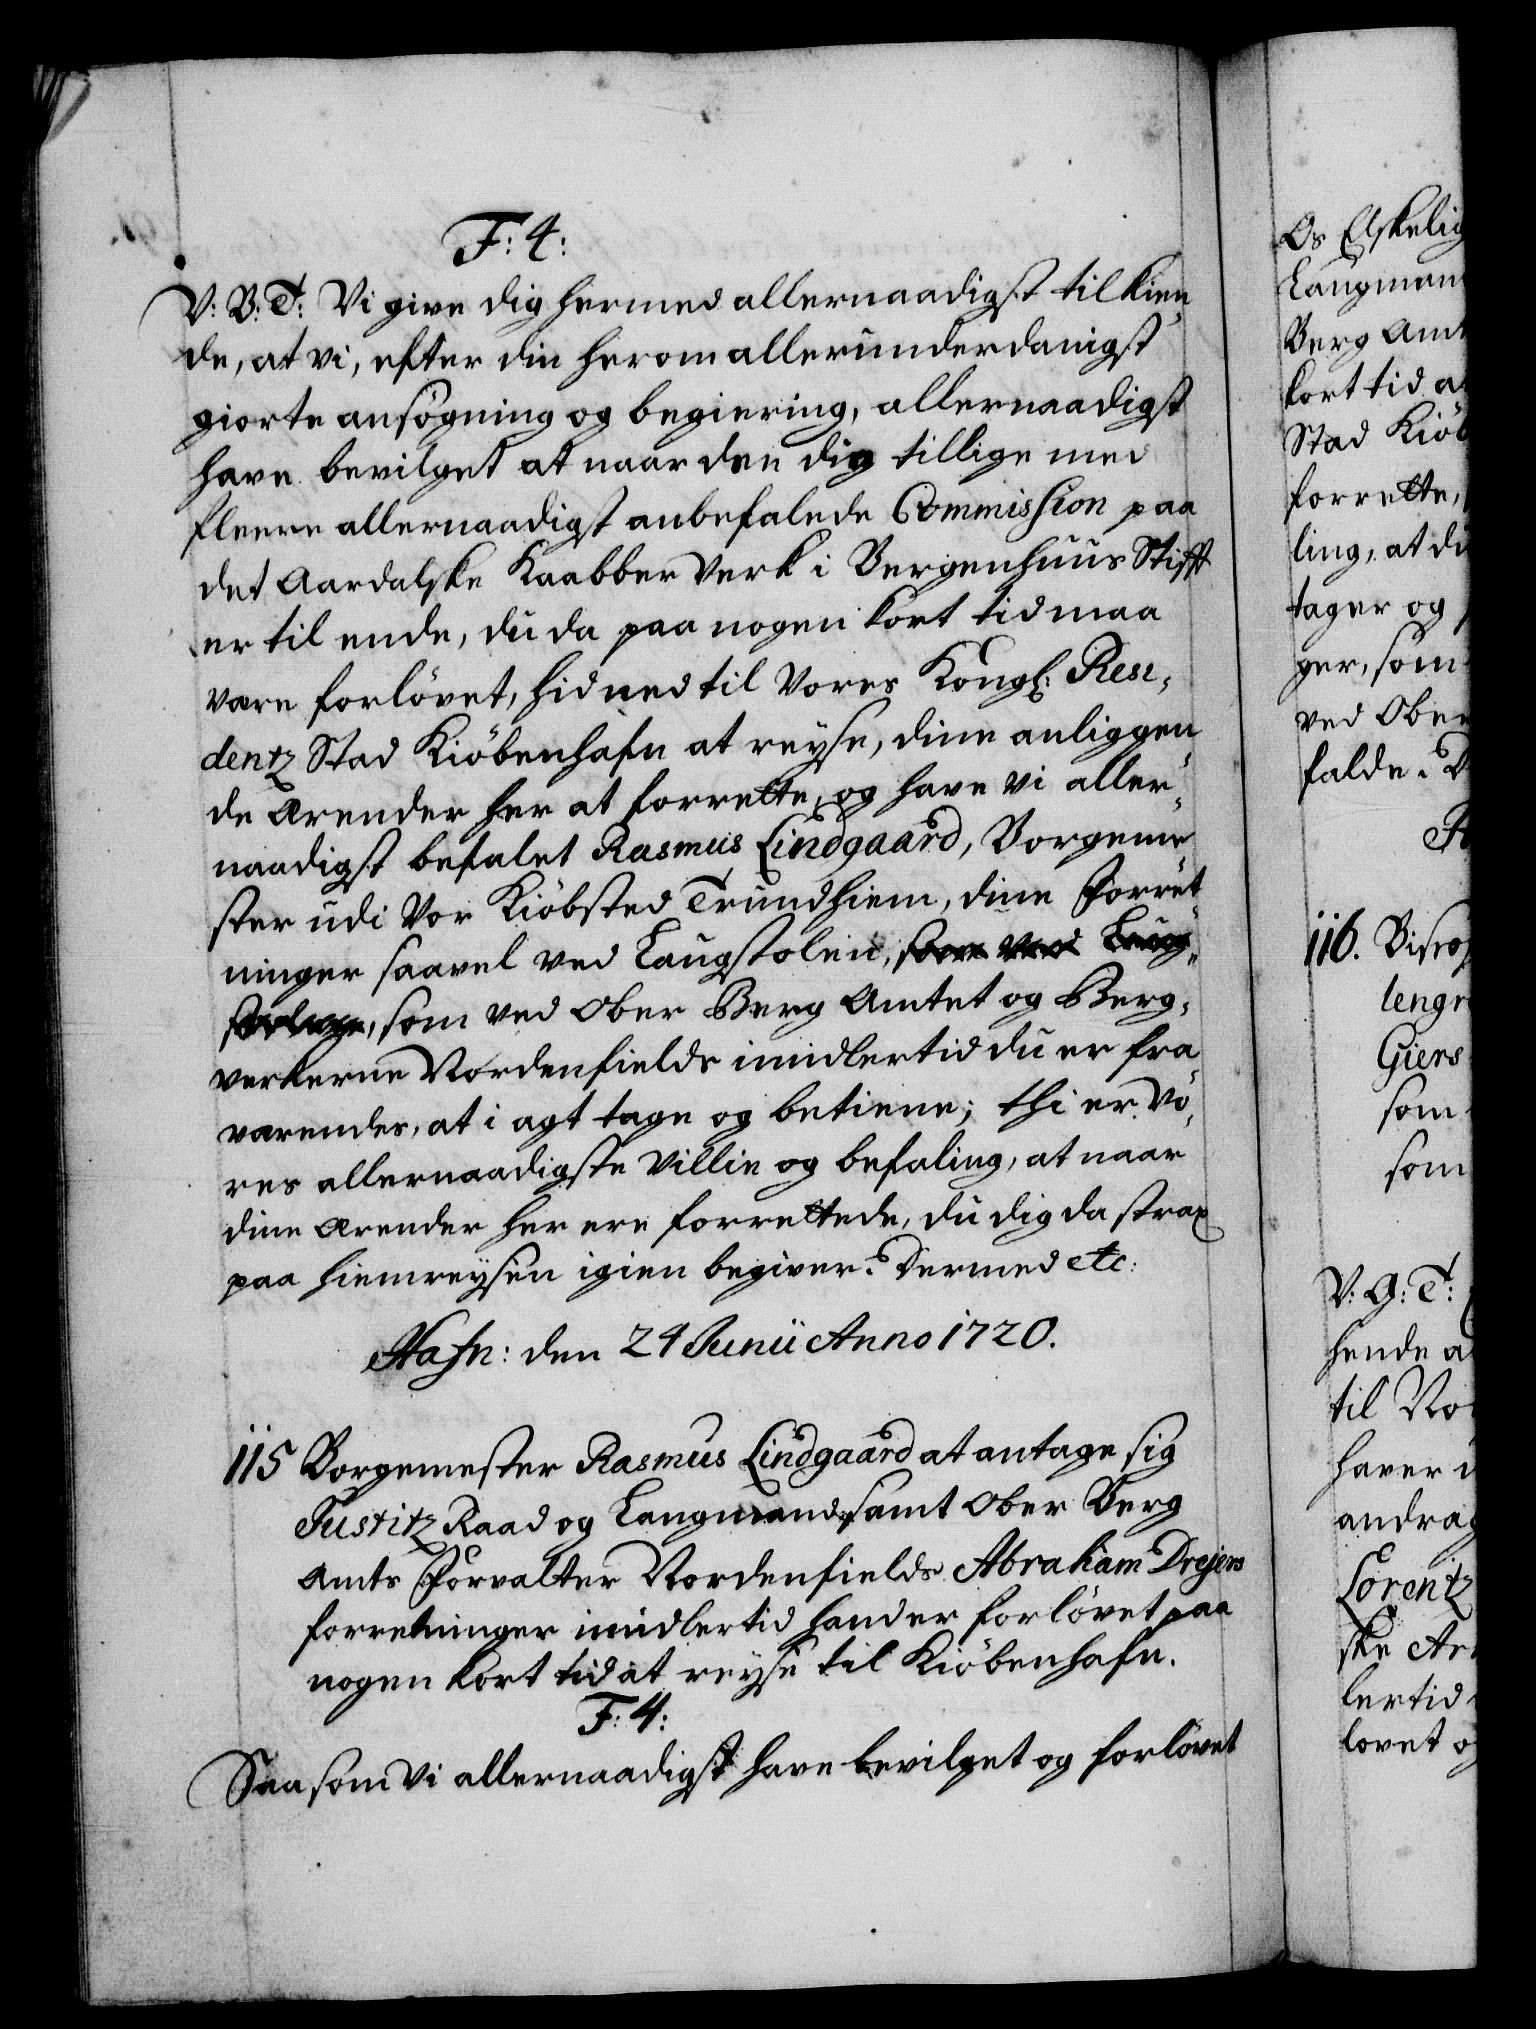 F: 4:
V: B: T: Vi give dig hermed allernaadigst tilkien„
de, at vi, efter din herom allerunderdanigst
giorte ansögning og begiering, allernaadigst
have bevilget at naar den dig tillige med
fleere allernaadigst anbefalede Commission paa
det Aardalske Kaabber Verk i Bergenhuus Stifft
er til ende, du da paa nogen kort tid maa
være forlövet, hid ned til Vores Kongl: Resi„
dentz Stad Kiöbenhafn at reyse, dine anliggen„
de Ærender her at forrette, og have vi aller„
naadigst befalet Rasmus Lindgaard, Borgeme„
ster udi Vor Kiöbsted Trundhiem, dine Forret„
ninger saavel ved Laugstolen, som ved Laug„
stolene, som ved Ober Berg Amtet og Berg„
verkerne Nordenfields imidlertid du er fra„
værendes, at i agt tage og betiene; thi er Vo„
res allernaadigste Villie og befaling, at naar
dine Ærender her ere forrettede, du dig da strax
paa hiemreysen igien begiver. Dermed etc:
Hafn: den 24 Junii Anno 1720.
115 Borgemester Rasmus Lindgaard at antage sig
Justitz Raad og Laugmand samt Ober Berg
Amts Forvalter Nordenfields Abraham Drejers
forretninger imidlertid hand er forlövet paa
nogen kort tid at reyse til Kiöbenhafn.
F: 4:
Saasom Vi allernaadigst have bevilget og forlövet
Os Elskelig
Laugman
Berg Amt
kort tid a
Stad Kiöb
forrette,
ling, at du
tager og
ger, som
ved Ober
falde. D
116. Bisco
lengr
Giers
som
som
V: G: T:
hende a
til No
haver
andrag
Lorentz
ske Ar
lertid
lovet o